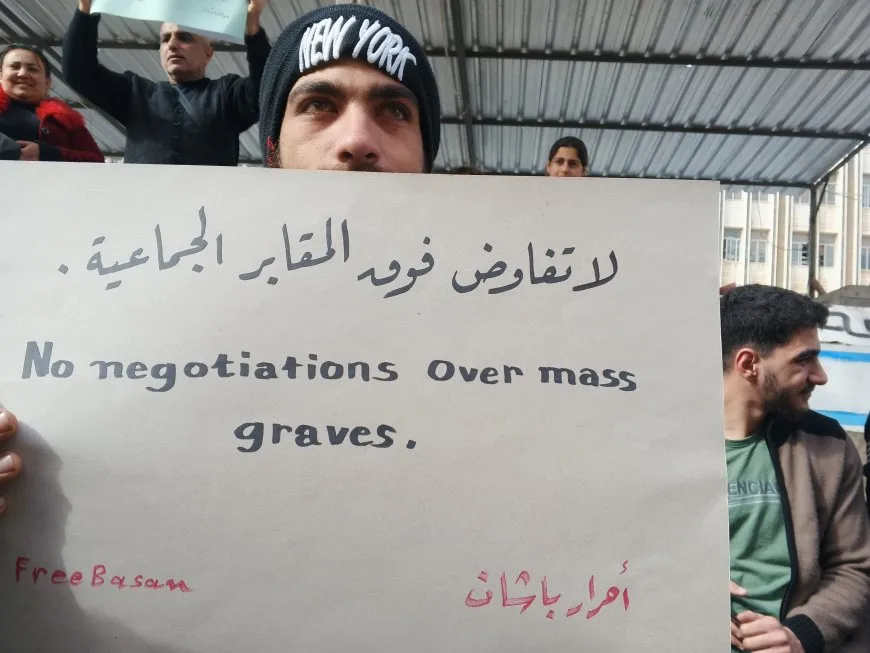 NEW YORK
لا تفاوض فوق المقابر الجماعية .
No negotiations over mass
graves.
Free Basan
أحرار باشان
ENCIA